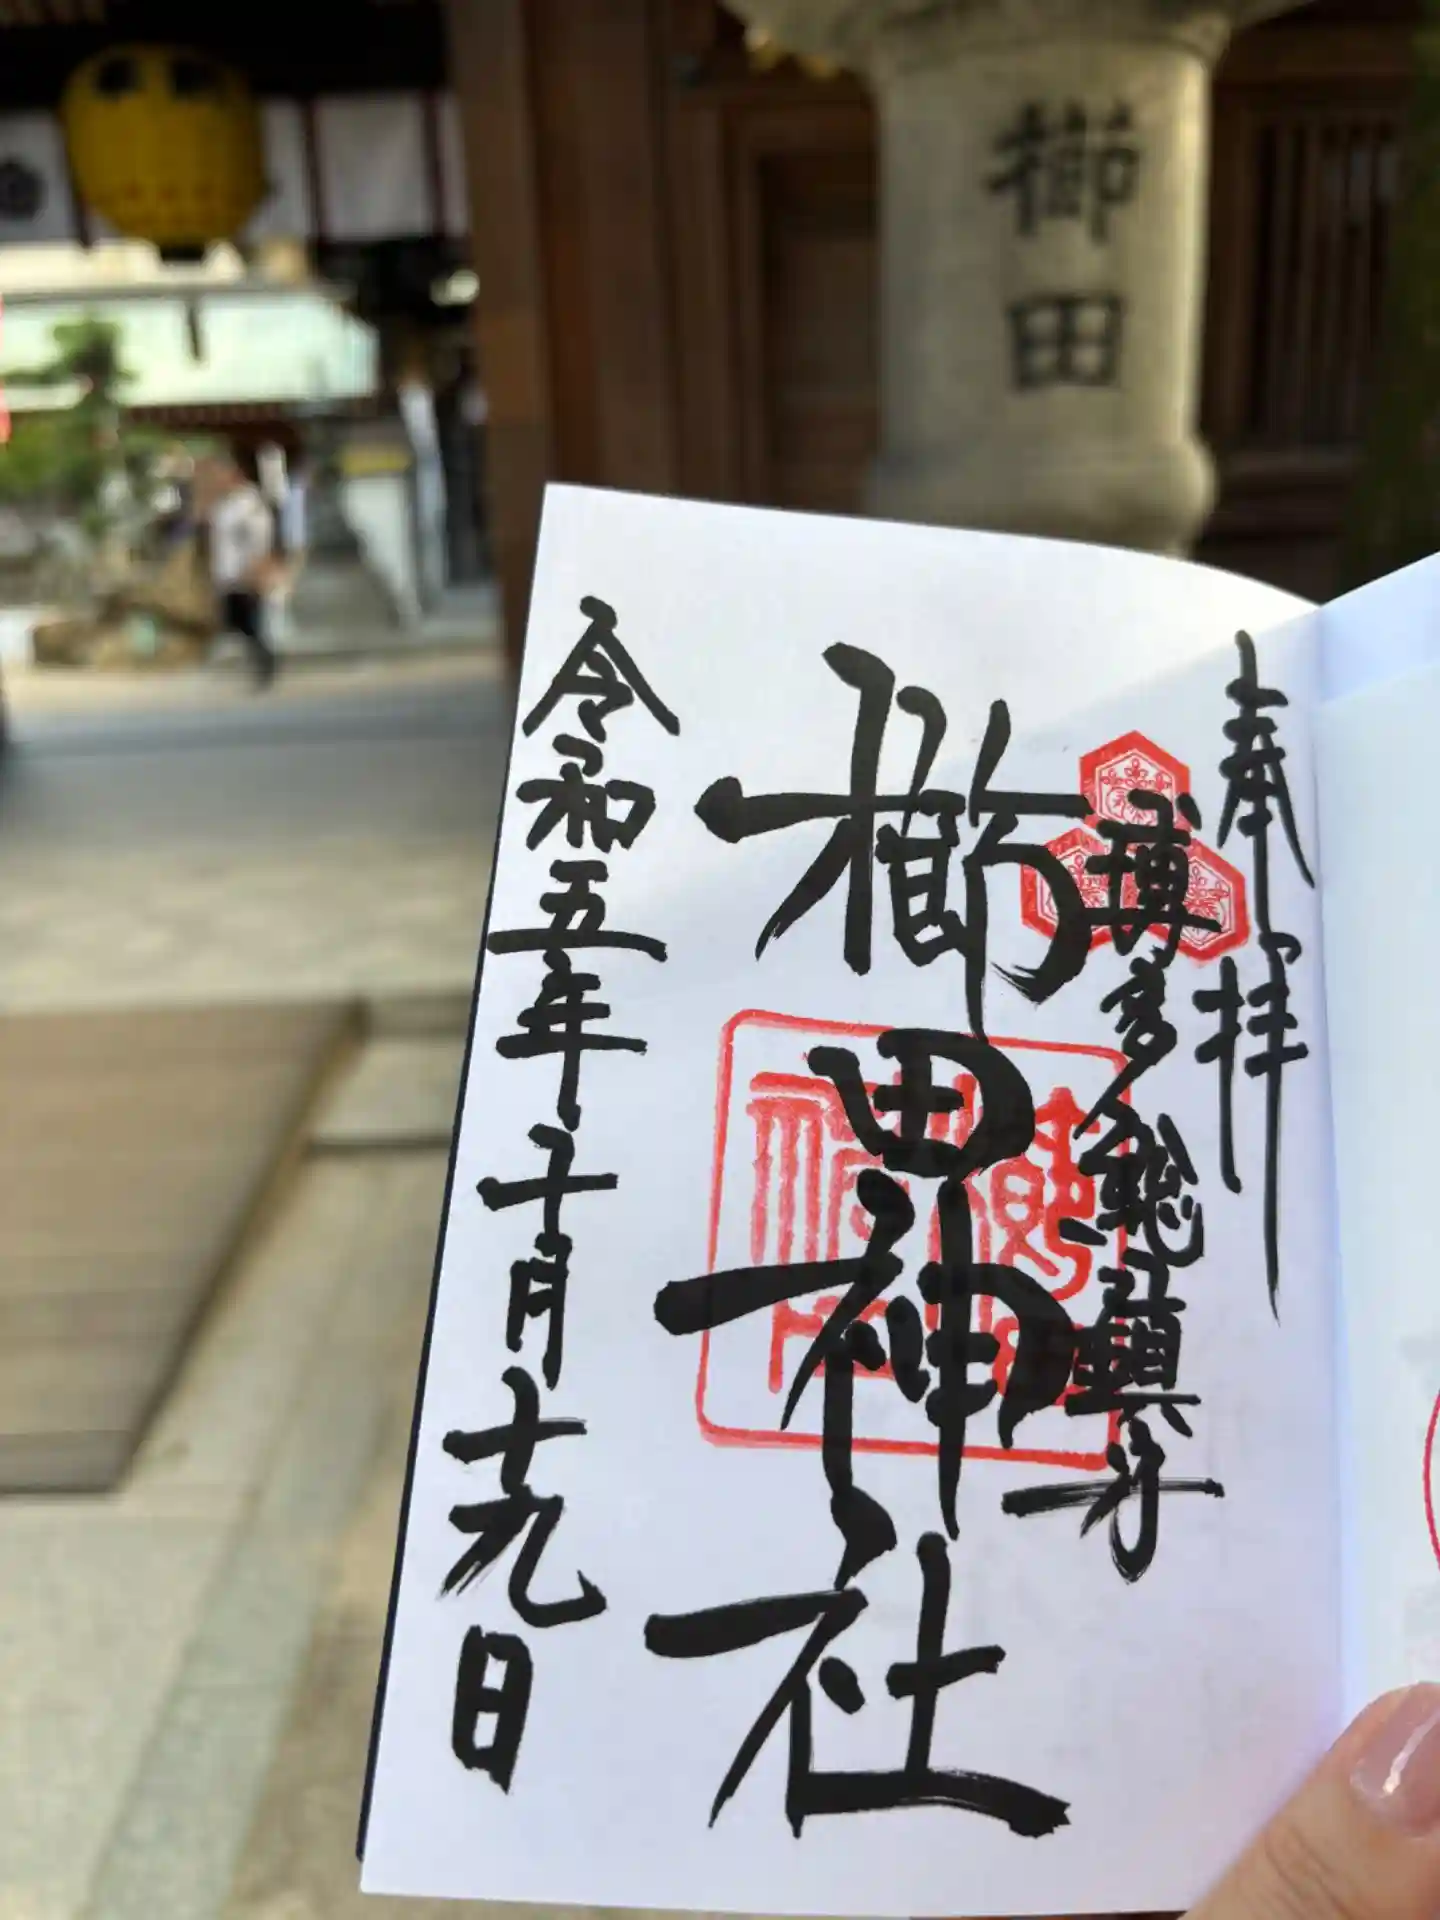 櫛田
奉拝
博多総鎮守
櫛田神社
令和五年十月十九日